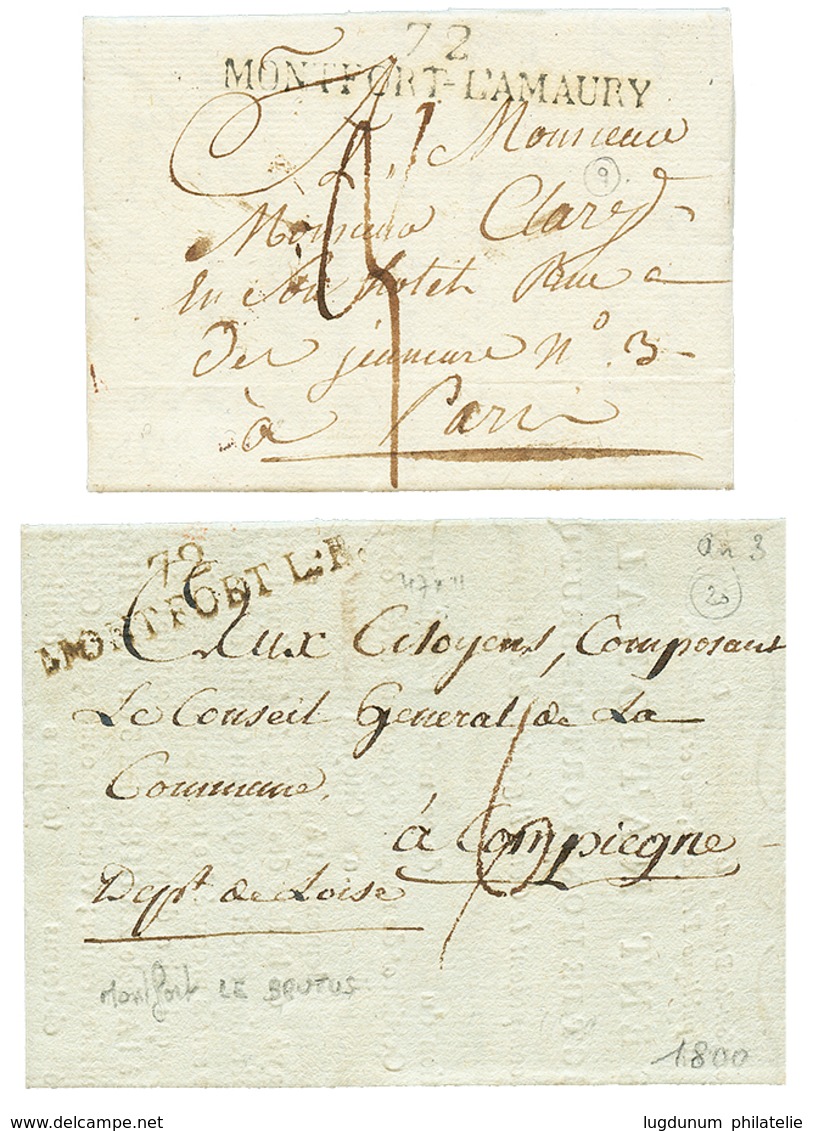 72
MONTFORT-L'AMAURY
A, Monsieur
9
Monsieur Clare
En Son hotel Rue
Des jeuneurs n° 3
à Paris
72
MONTFORT L:B.
An 3
20
47 x 11
Aux Citoyens, Composant
Le Conseil General de La
Commune,
à Compiegne
Dept de Loise
Montfort LE BRUTUS
1800
lugdunum philatelie